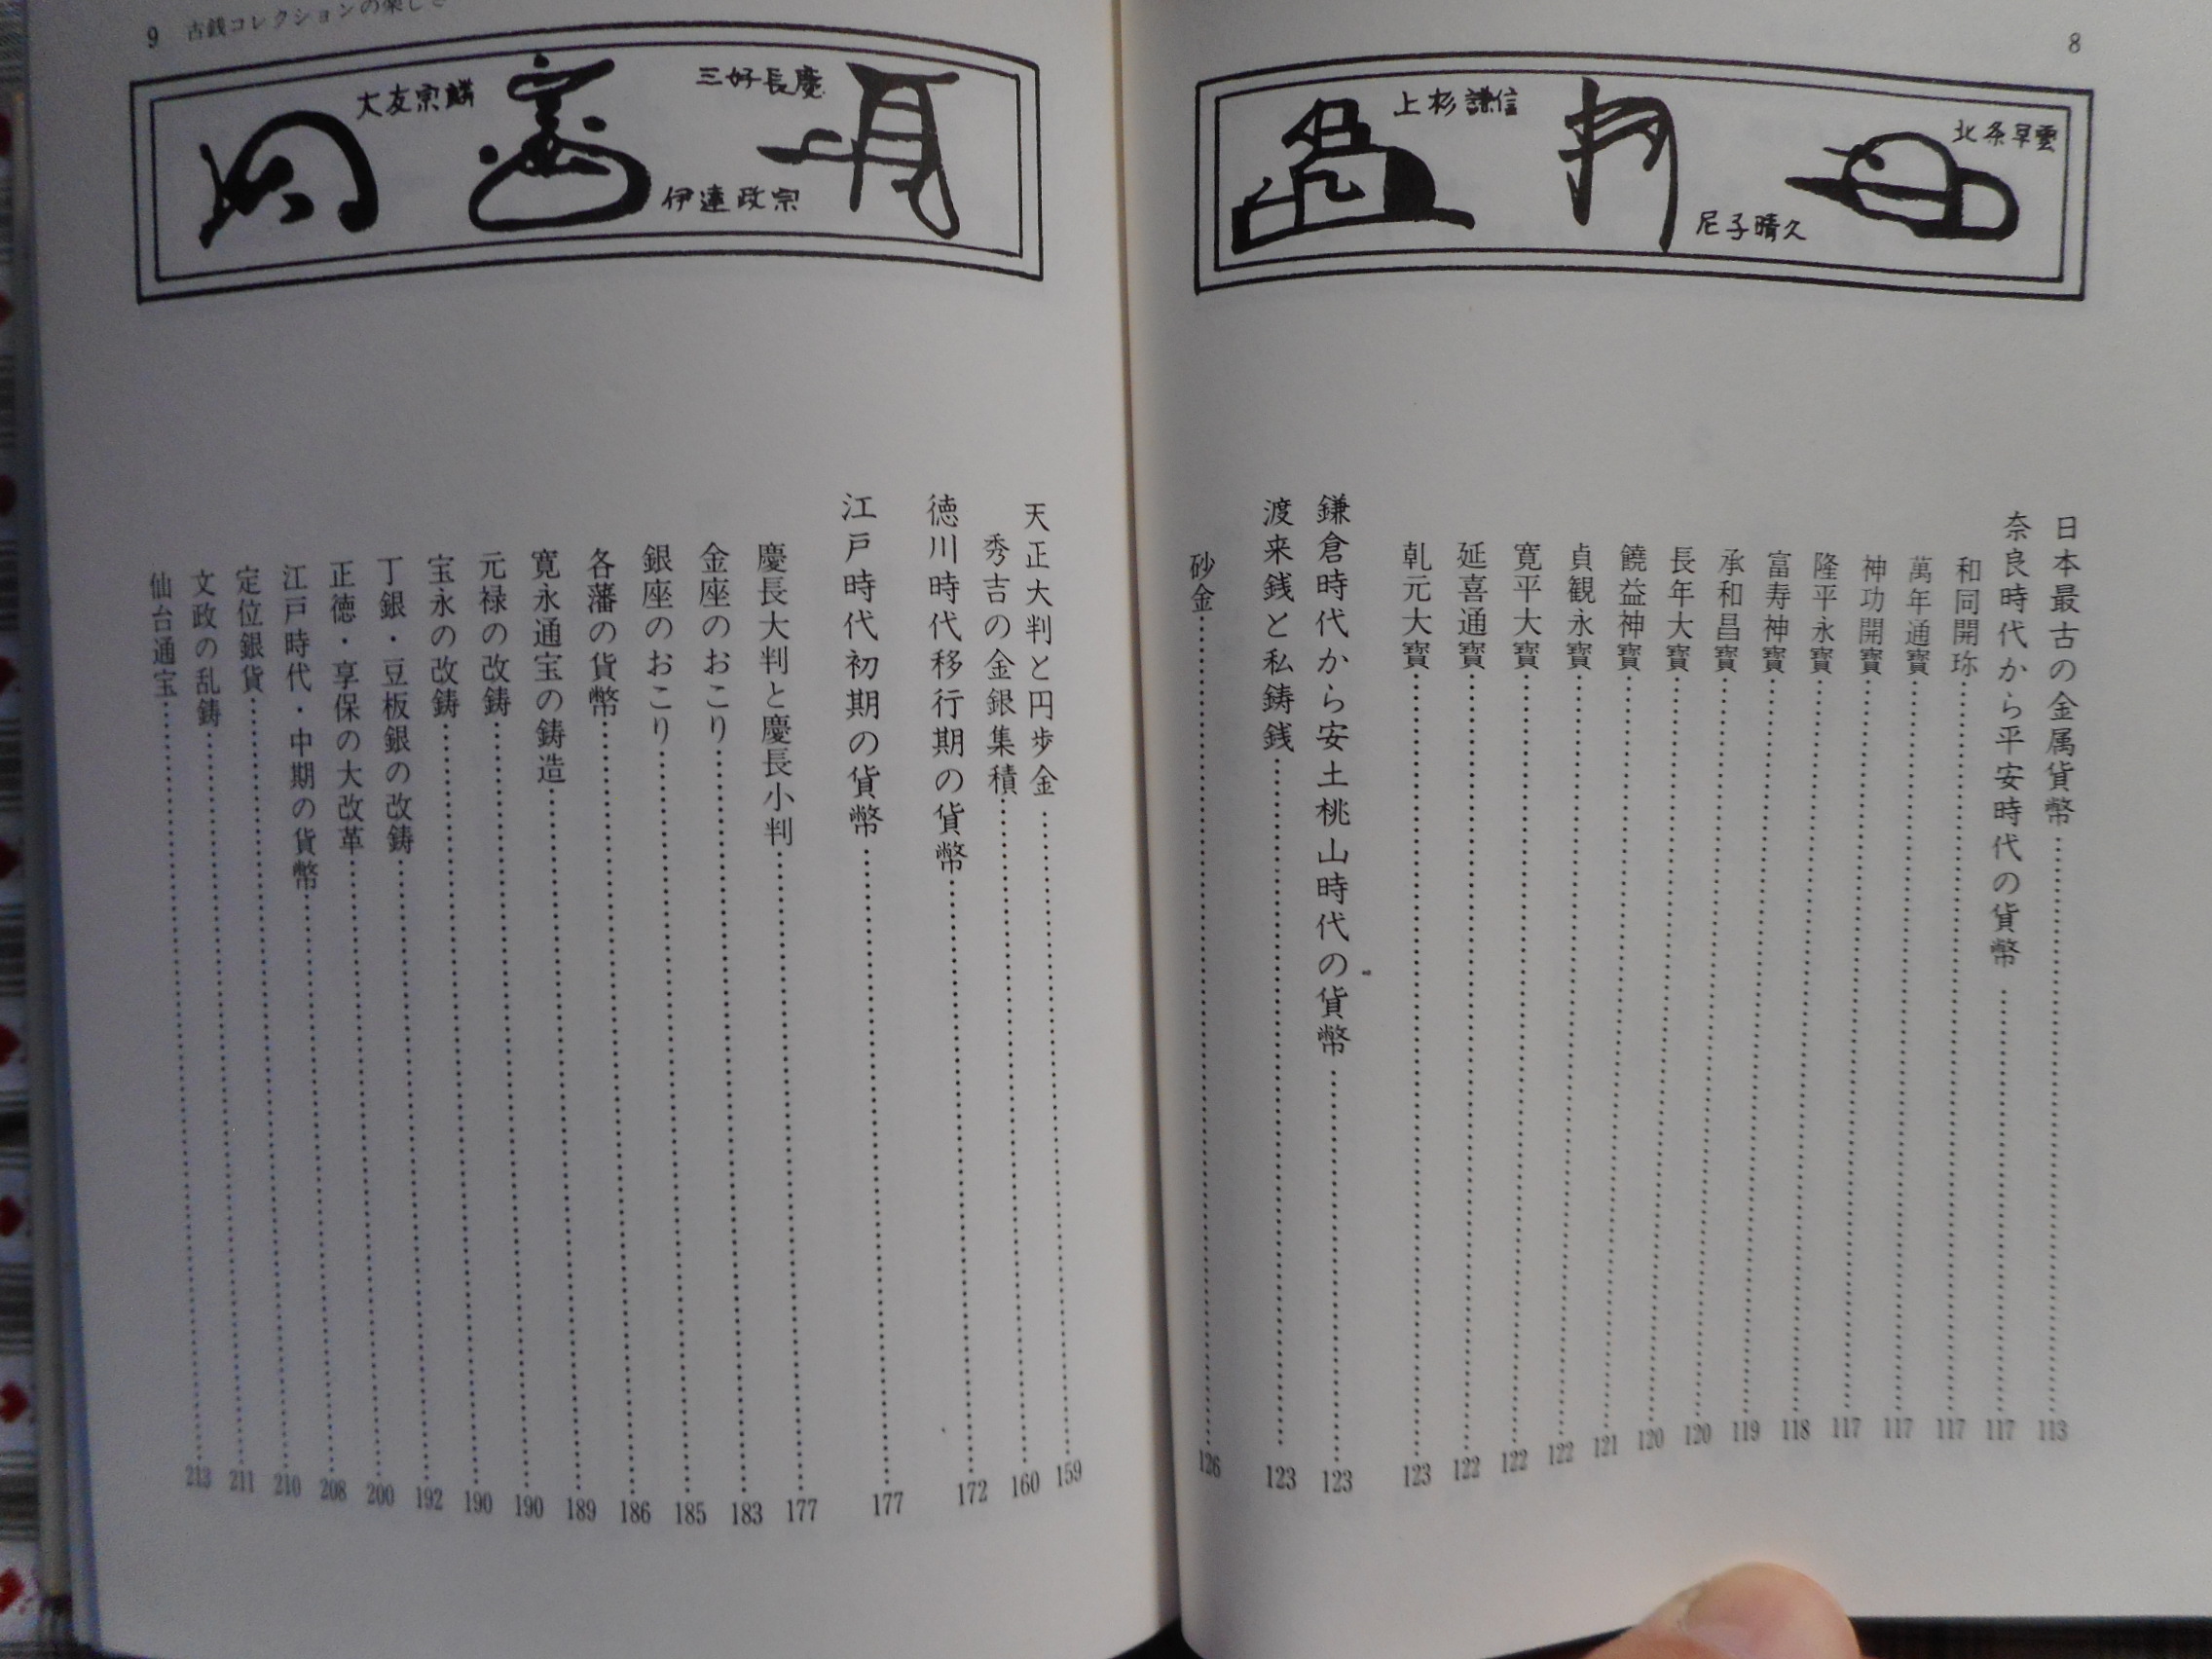 8
北条早雲
尼子晴久
上杉謙信
日本最古の金属貨幣……113
奈良時代から平安時代の貨幣……117
和同開珎……117
萬年通寳……117
神功開寳……117
隆平永寳……118
富寿神寳……119
承和昌寳……120
長年大寳……120
饒益神寳……121
貞観永寳……122
寛平大寳……122
延喜通寳……122
乹元大寳……123
鎌倉時代から安土桃山時代の貨幣……123
渡来銭と私鋳銭……123
砂金……126
9 古銭コレクションの楽しさ
三好長慶
伊達政宗
大友宗麟
天正大判と円歩金……159
秀吉の金銀集積……160
徳川時代移行期の貨幣……172
江戸時代初期の貨幣……177
慶長大判と慶長小判……177
金座のおこり……183
銀座のおこり……185
各藩の貨幣……186
寛永通宝の鋳造……189
元禄の改鋳……190
宝永の改鋳……190
丁銀・豆板銀の改鋳……192
正徳・享保の大改革……200
江戸時代・中期の貨幣……208
定位銀貨……210
文政の乱鋳……211
仙台通宝……213